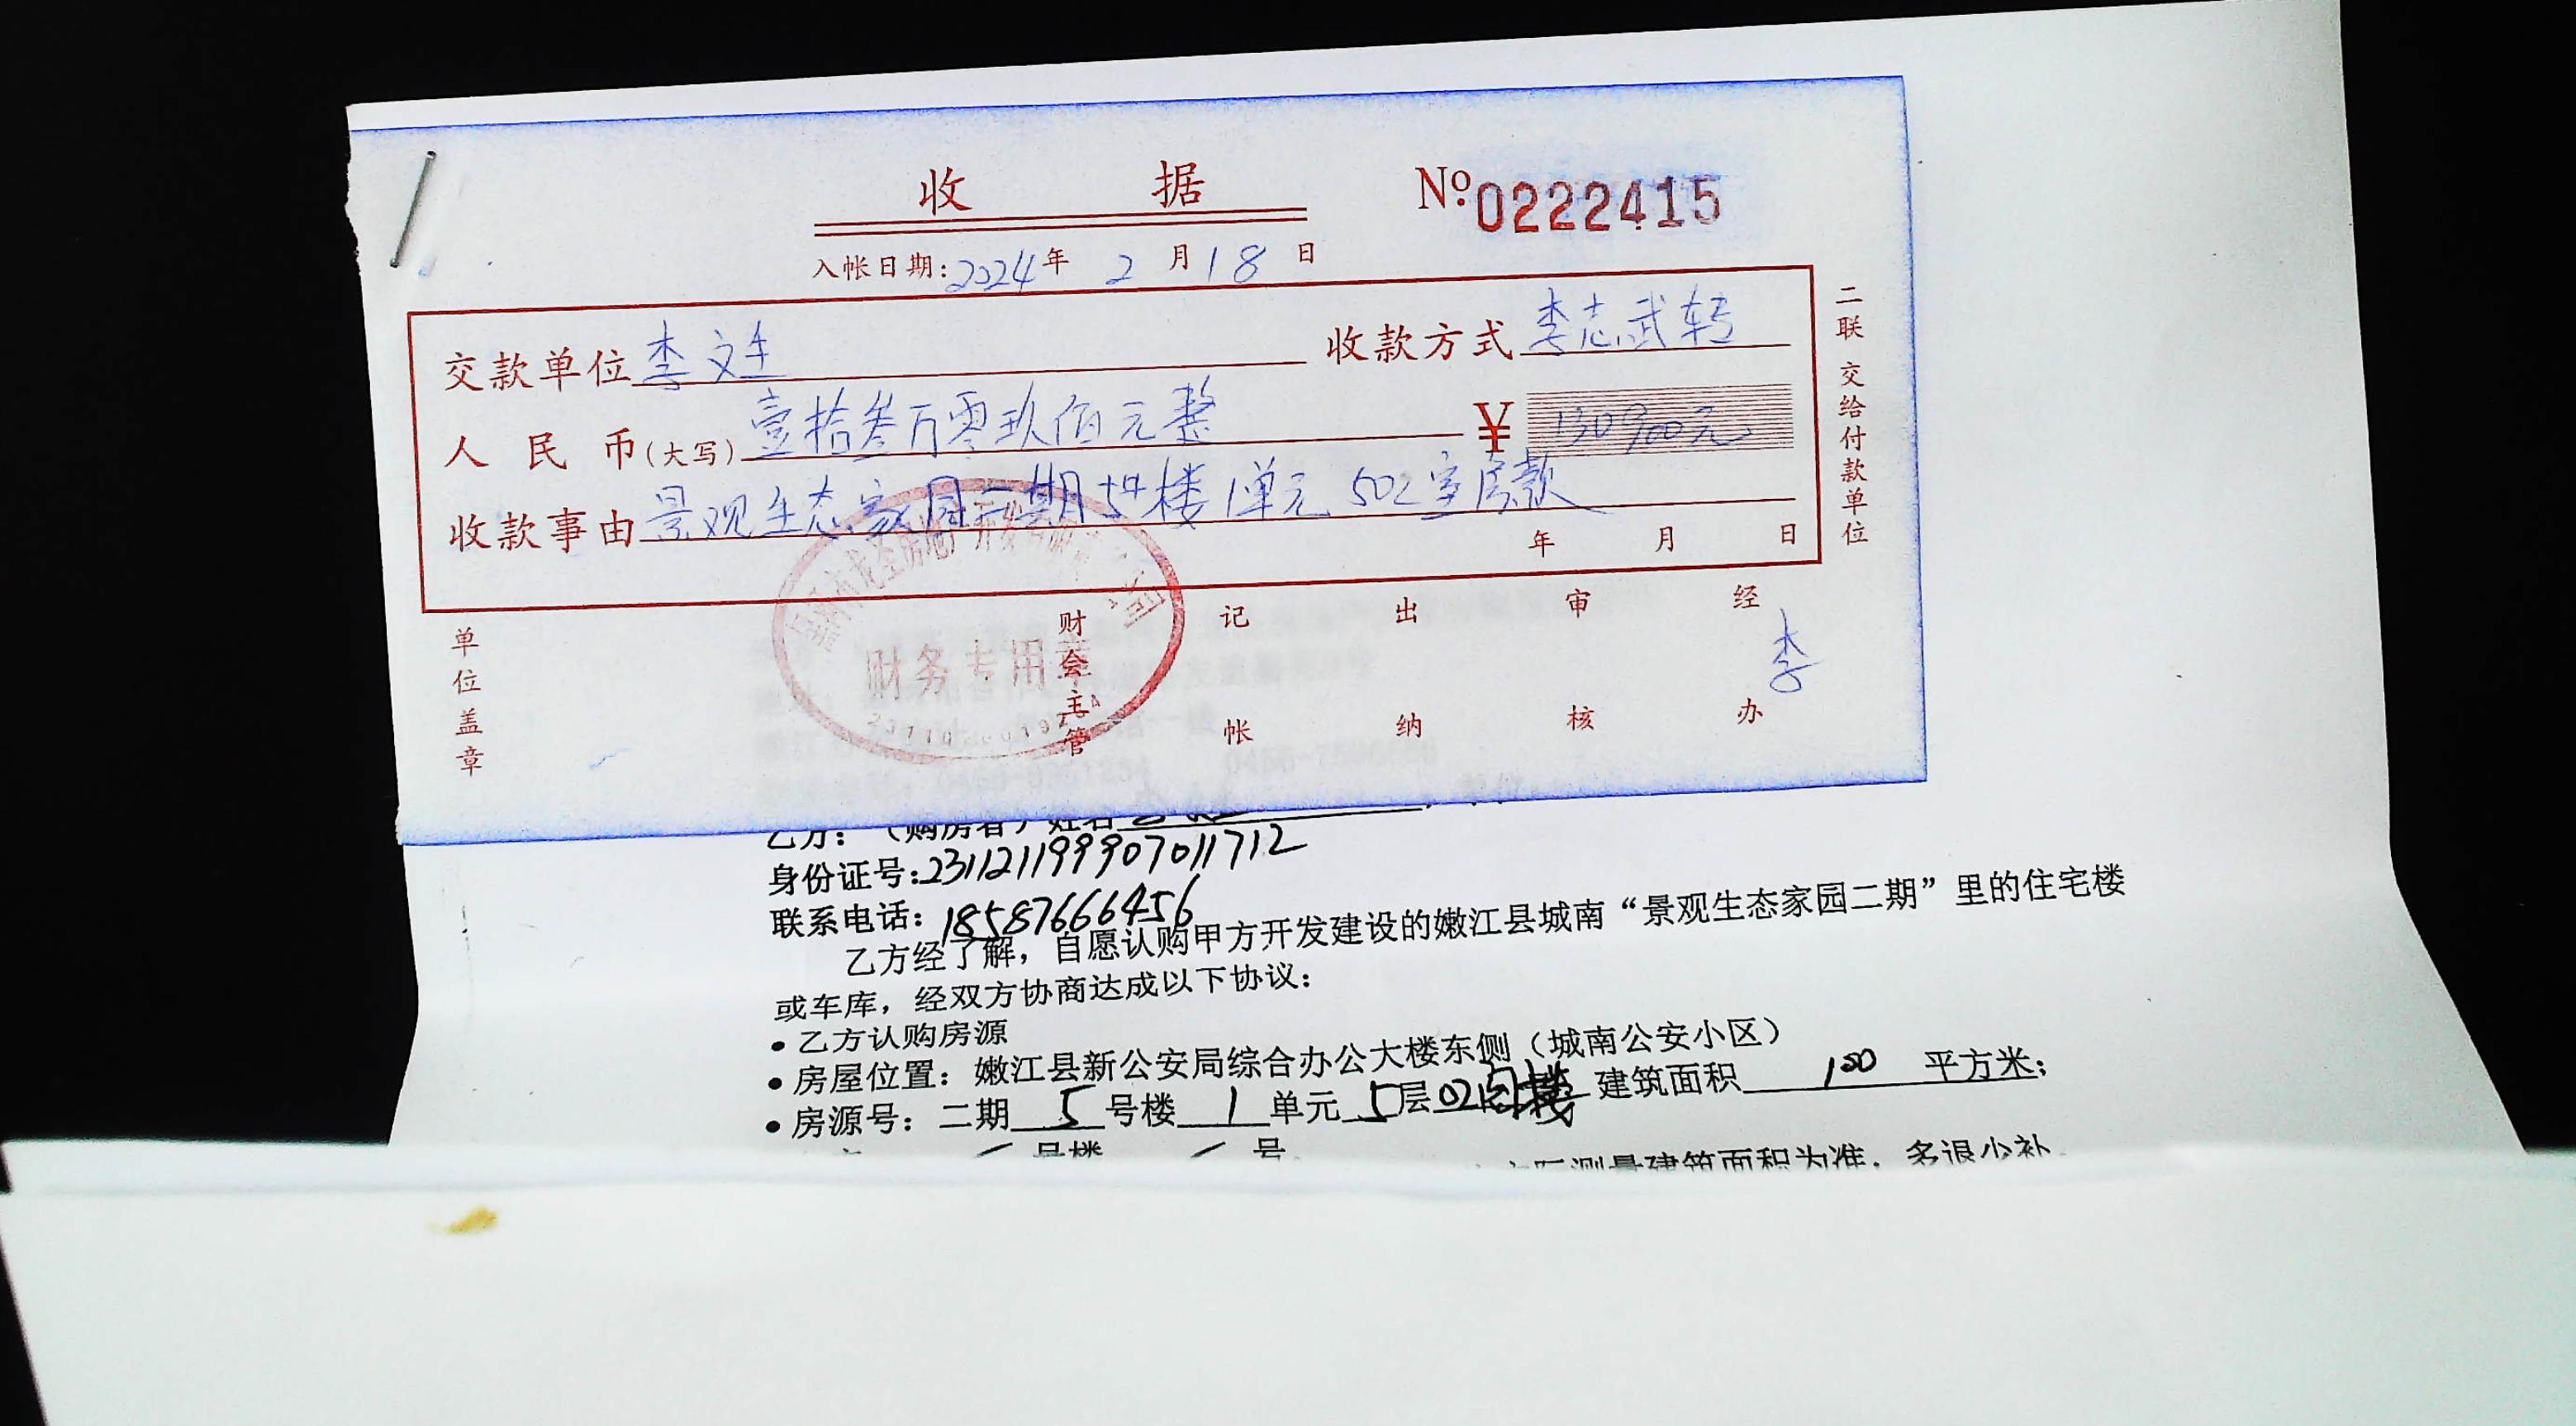 收 据
№:0222415
入帐日期:2024年 2 月18日
交款单位 李文 收款方式 李志武转
人民币(大写) 壹拾叁万零玖佰元整 ¥ 130900元
收款事由 景观生态家园二期5#楼1单元502室房款
年 月 日
二联交给付款单位
单位盖章
财会主管 记帐 出纳 审核 经办 李
财务专用章
乙方:(购房者)姓名
身份证号:231121199907011712
联系电话:18587666456
乙方经了解,自愿认购甲方开发建设的嫩江县城南“景观生态家园二期”里的住宅楼
或车库,经双方协商达成以下协议:
• 乙方认购房源
• 房屋位置:嫩江县新公安局综合办公大楼东侧(城南公安小区)
• 房源号:二期 5 号楼 1 单元 5 层 02 建筑面积 100 平方米;
号楼 号
测量建筑面积为准,多退少补